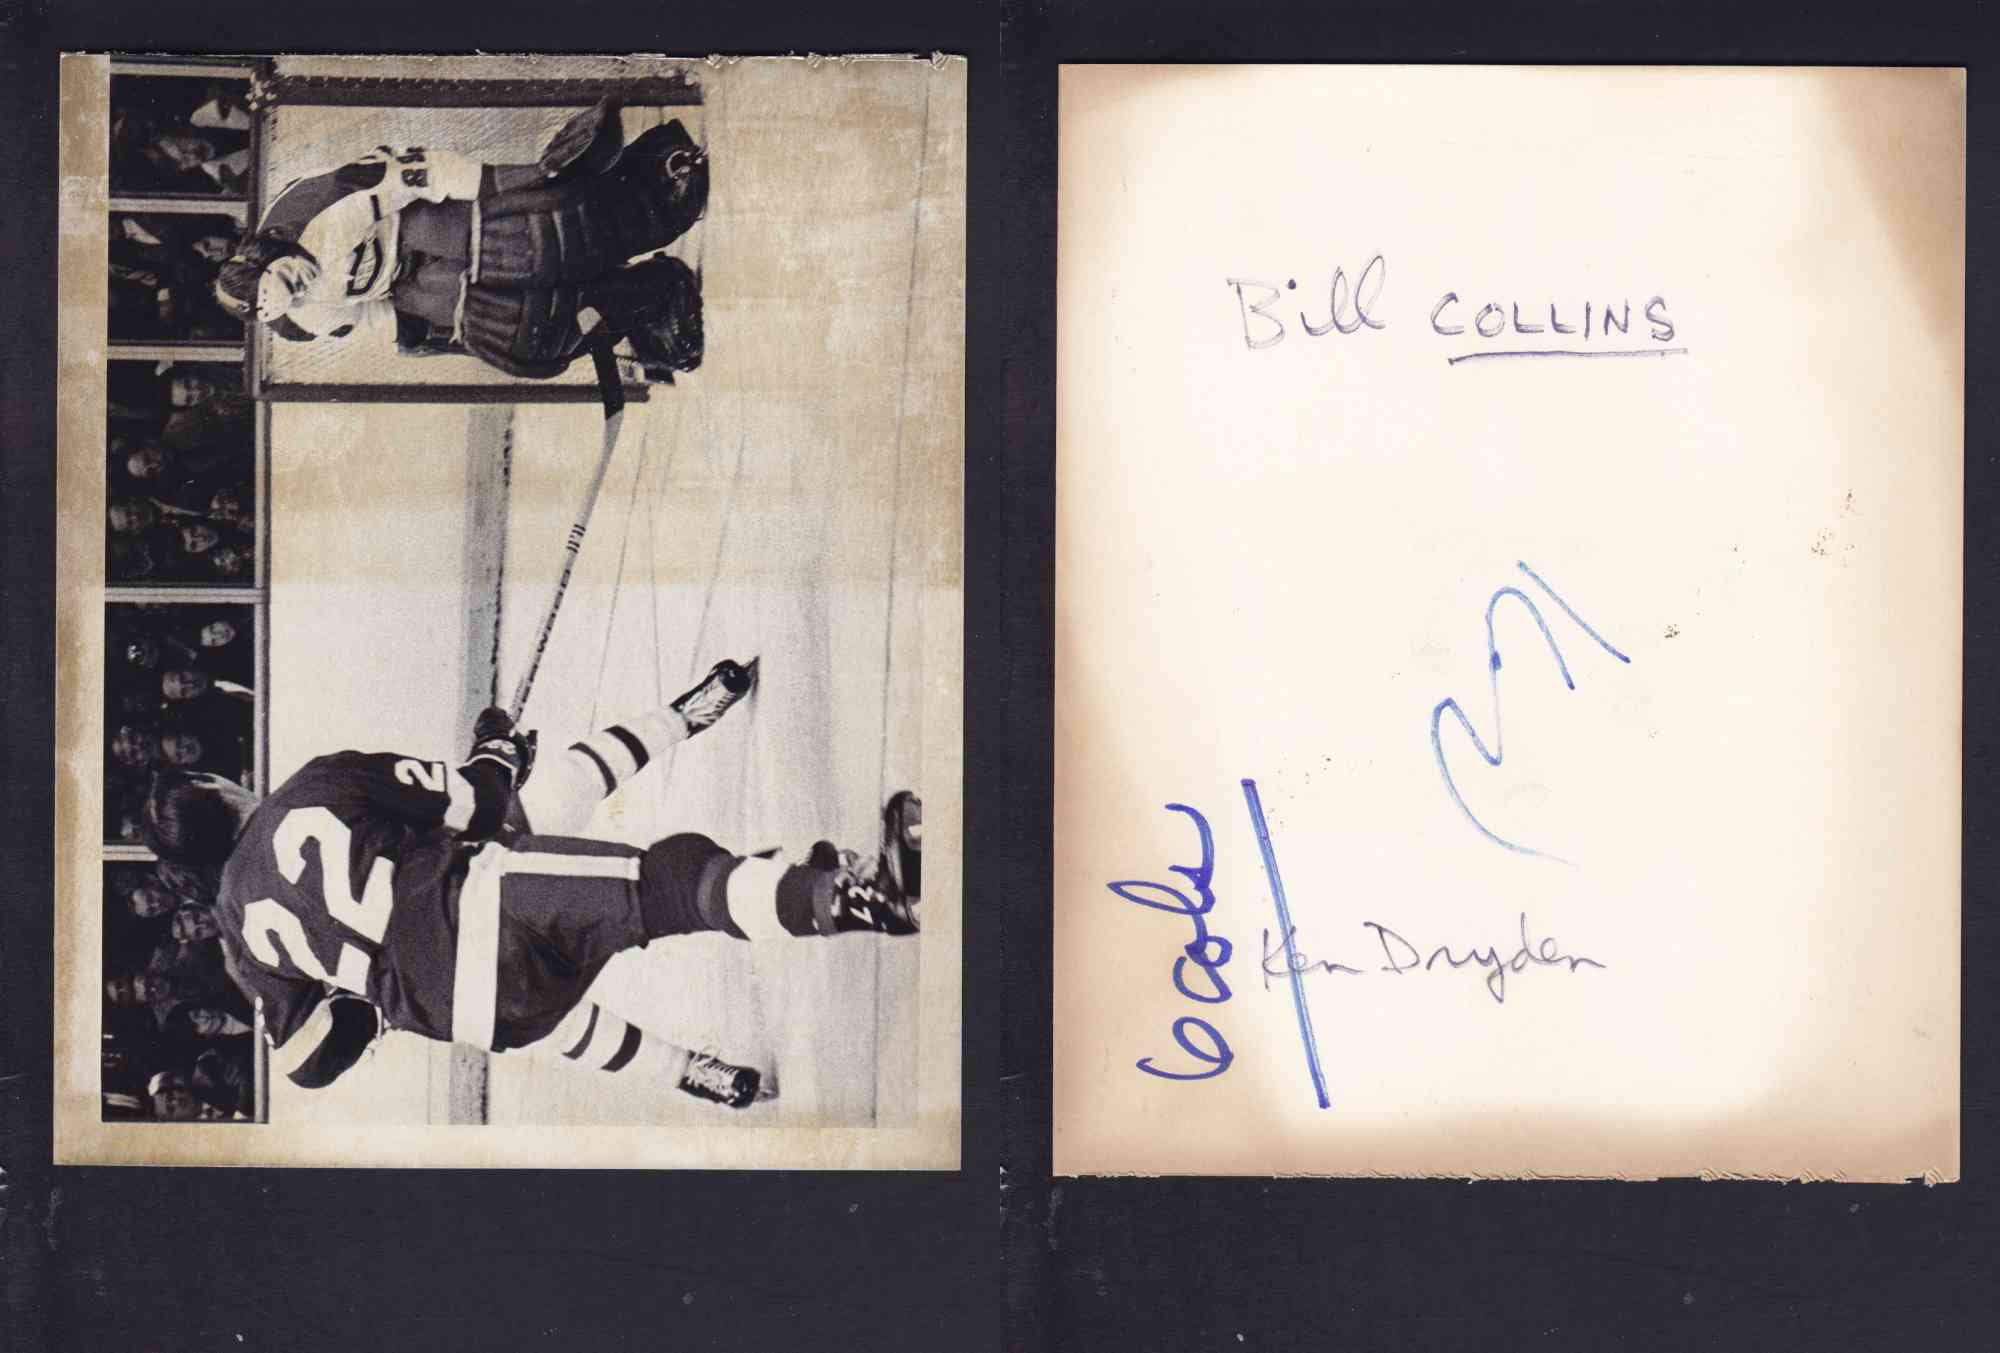 22
2
22
Bill COLLINS
6 cols
Ken Dryden